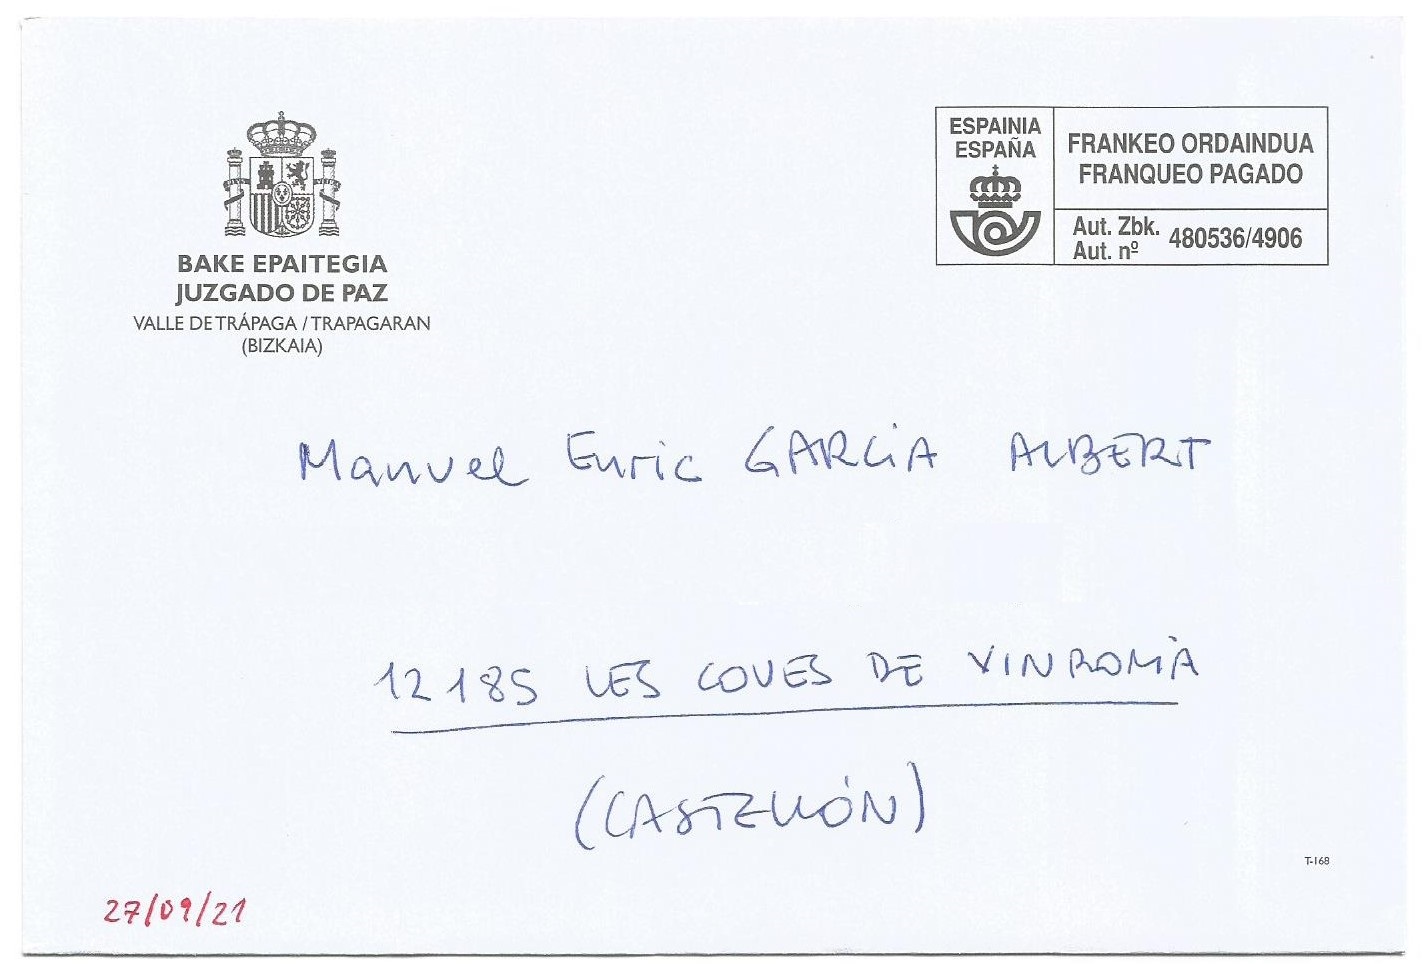 BAKE EPAITEGIA
JUZGADO DE PAZ
VALLE DE TRÁPAGA / TRAPAGARAN
(BIZKAIA)
ESPAINIA
ESPAÑA
FRANKEO ORDAINDUA
FRANQUEO PAGADO
Aut. Zbk.
Aut. nº
480536/4906
Manuel Enric GARCÍA ALBERT
12185 LES COVES DE VINROMÀ
(CASTELLÓN)
T-168
27/09/21